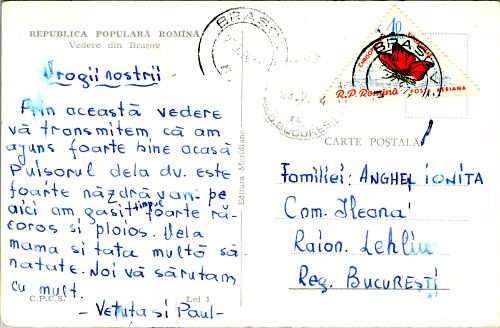 REPUBLICA POPULARA ROMÎNĂ
Vedere din Brașov
Dragii nostrii
Prin această vedere
vă transmitem că am
ajuns foarte bine acasă
Puișorul dela dv. este
foarte năzdrăvan: pe
aici am gasit timpul foarte ră-
coros si ploios. Dela
mama si tata multă să
natate. Noi vă sărutam
cu mult.
- Vetuta si Paul -
C.P.C.S.
Lei 1
Editura Meridiane
BRAȘOV
10
BRAȘOV
R.P. Romînă
POSTA AERIANA
BUCUREȘTI
CARTE POȘTALĂ
Familiei: ANGHEL IONITA
Com. Ileana
Raion. Lehliu
Reg. BUCUREȘTI